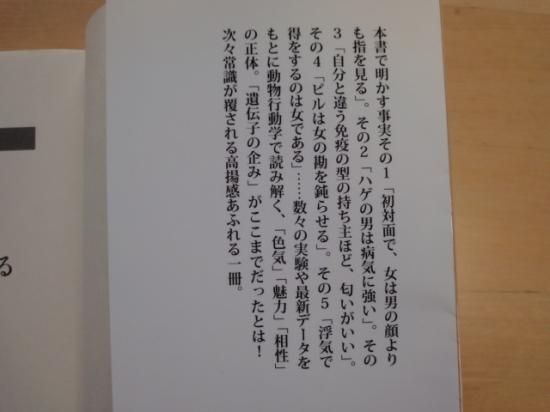 本書で明かす事実その1「初対面で、女は男の顔より
も指を見る」。その2「ハゲの男は病気に強い」。その
3「自分と違う免疫の型の持ち主ほど、匂いがいい」。
その4「ピルは女の勘を鈍らせる」。その5「浮気で
得をするのは女である」……数々の実験や最新データを
もとに動物行動学で読み解く、「色気」「魅力」「相性」
の正体。「遺伝子の企み」がここまでだったとは！
次々常識が覆される高揚感あふれる一冊。
る